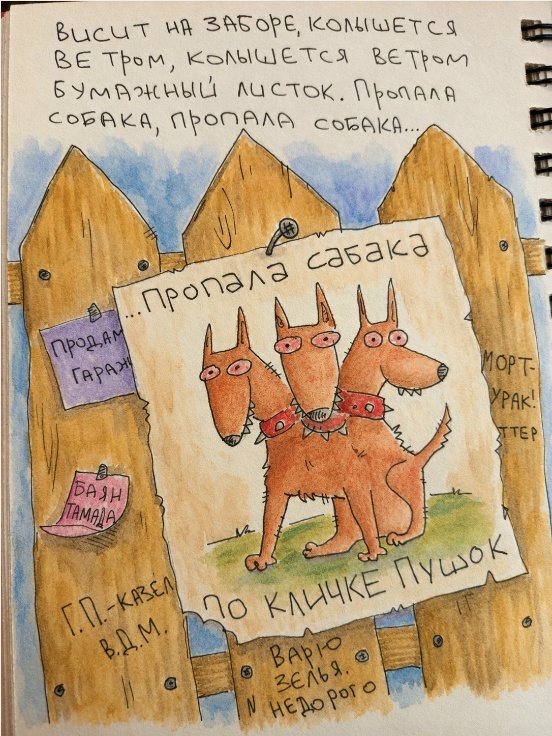 ВИСИТ НА ЗАБОРЕ, КОЛЫШЕТСЯ
ВЕТРОМ, КОЛЫШЕТСЯ ВЕТРОМ
БУМАЖНЫЙ ЛИСТОК. ПРОПАЛА
СОБАКА, ПРОПАЛА СОБАКА...
...ПРОПАЛА САБАКА
ПРОДАМ
ГАРАЖ
МОРТ-
УРАК!
ТТЕР
БАЯН
ТАМАДА
ПО КЛИЧКЕ ПУШОК
Г.П.-КАЗЕЛ
В.Д.М.
ВАРЮ
ЗЕЛЬЯ.
НЕДОРОГО